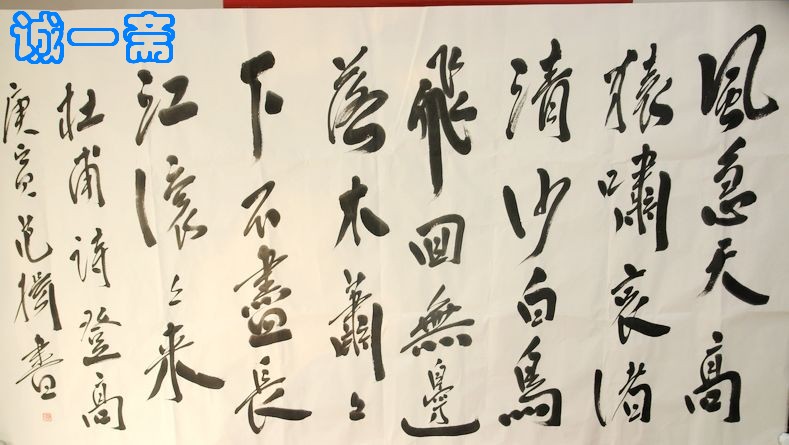 诚一斋
風急天高
猿嘯哀渚
清沙白鳥
飛回無邊
落木蕭々
下不盡長
江滚々来
杜甫诗登高
庚寅范揚書